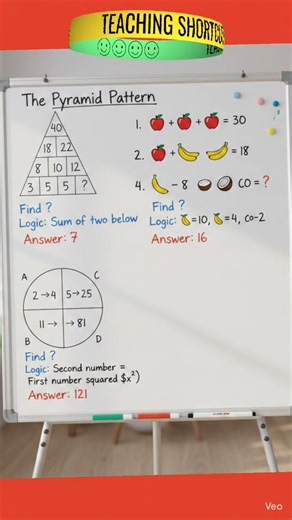 TEACHING SHORTCU
The Pyramid Pattern
40
18 22
8 10 12
3 5 5 ?
Find ?
Logic: Sum of two below
Answer: 7
1. + + = 30
2. + = 18
4. - 8 CO = ?
Find ?
Logic: =10, =4, co-2
Answer: 16
A
C
2→4 5→25
11→ →81
B
D
Find ?
Logic: Second number =
First number squared $x²)
Answer: 121
Veo